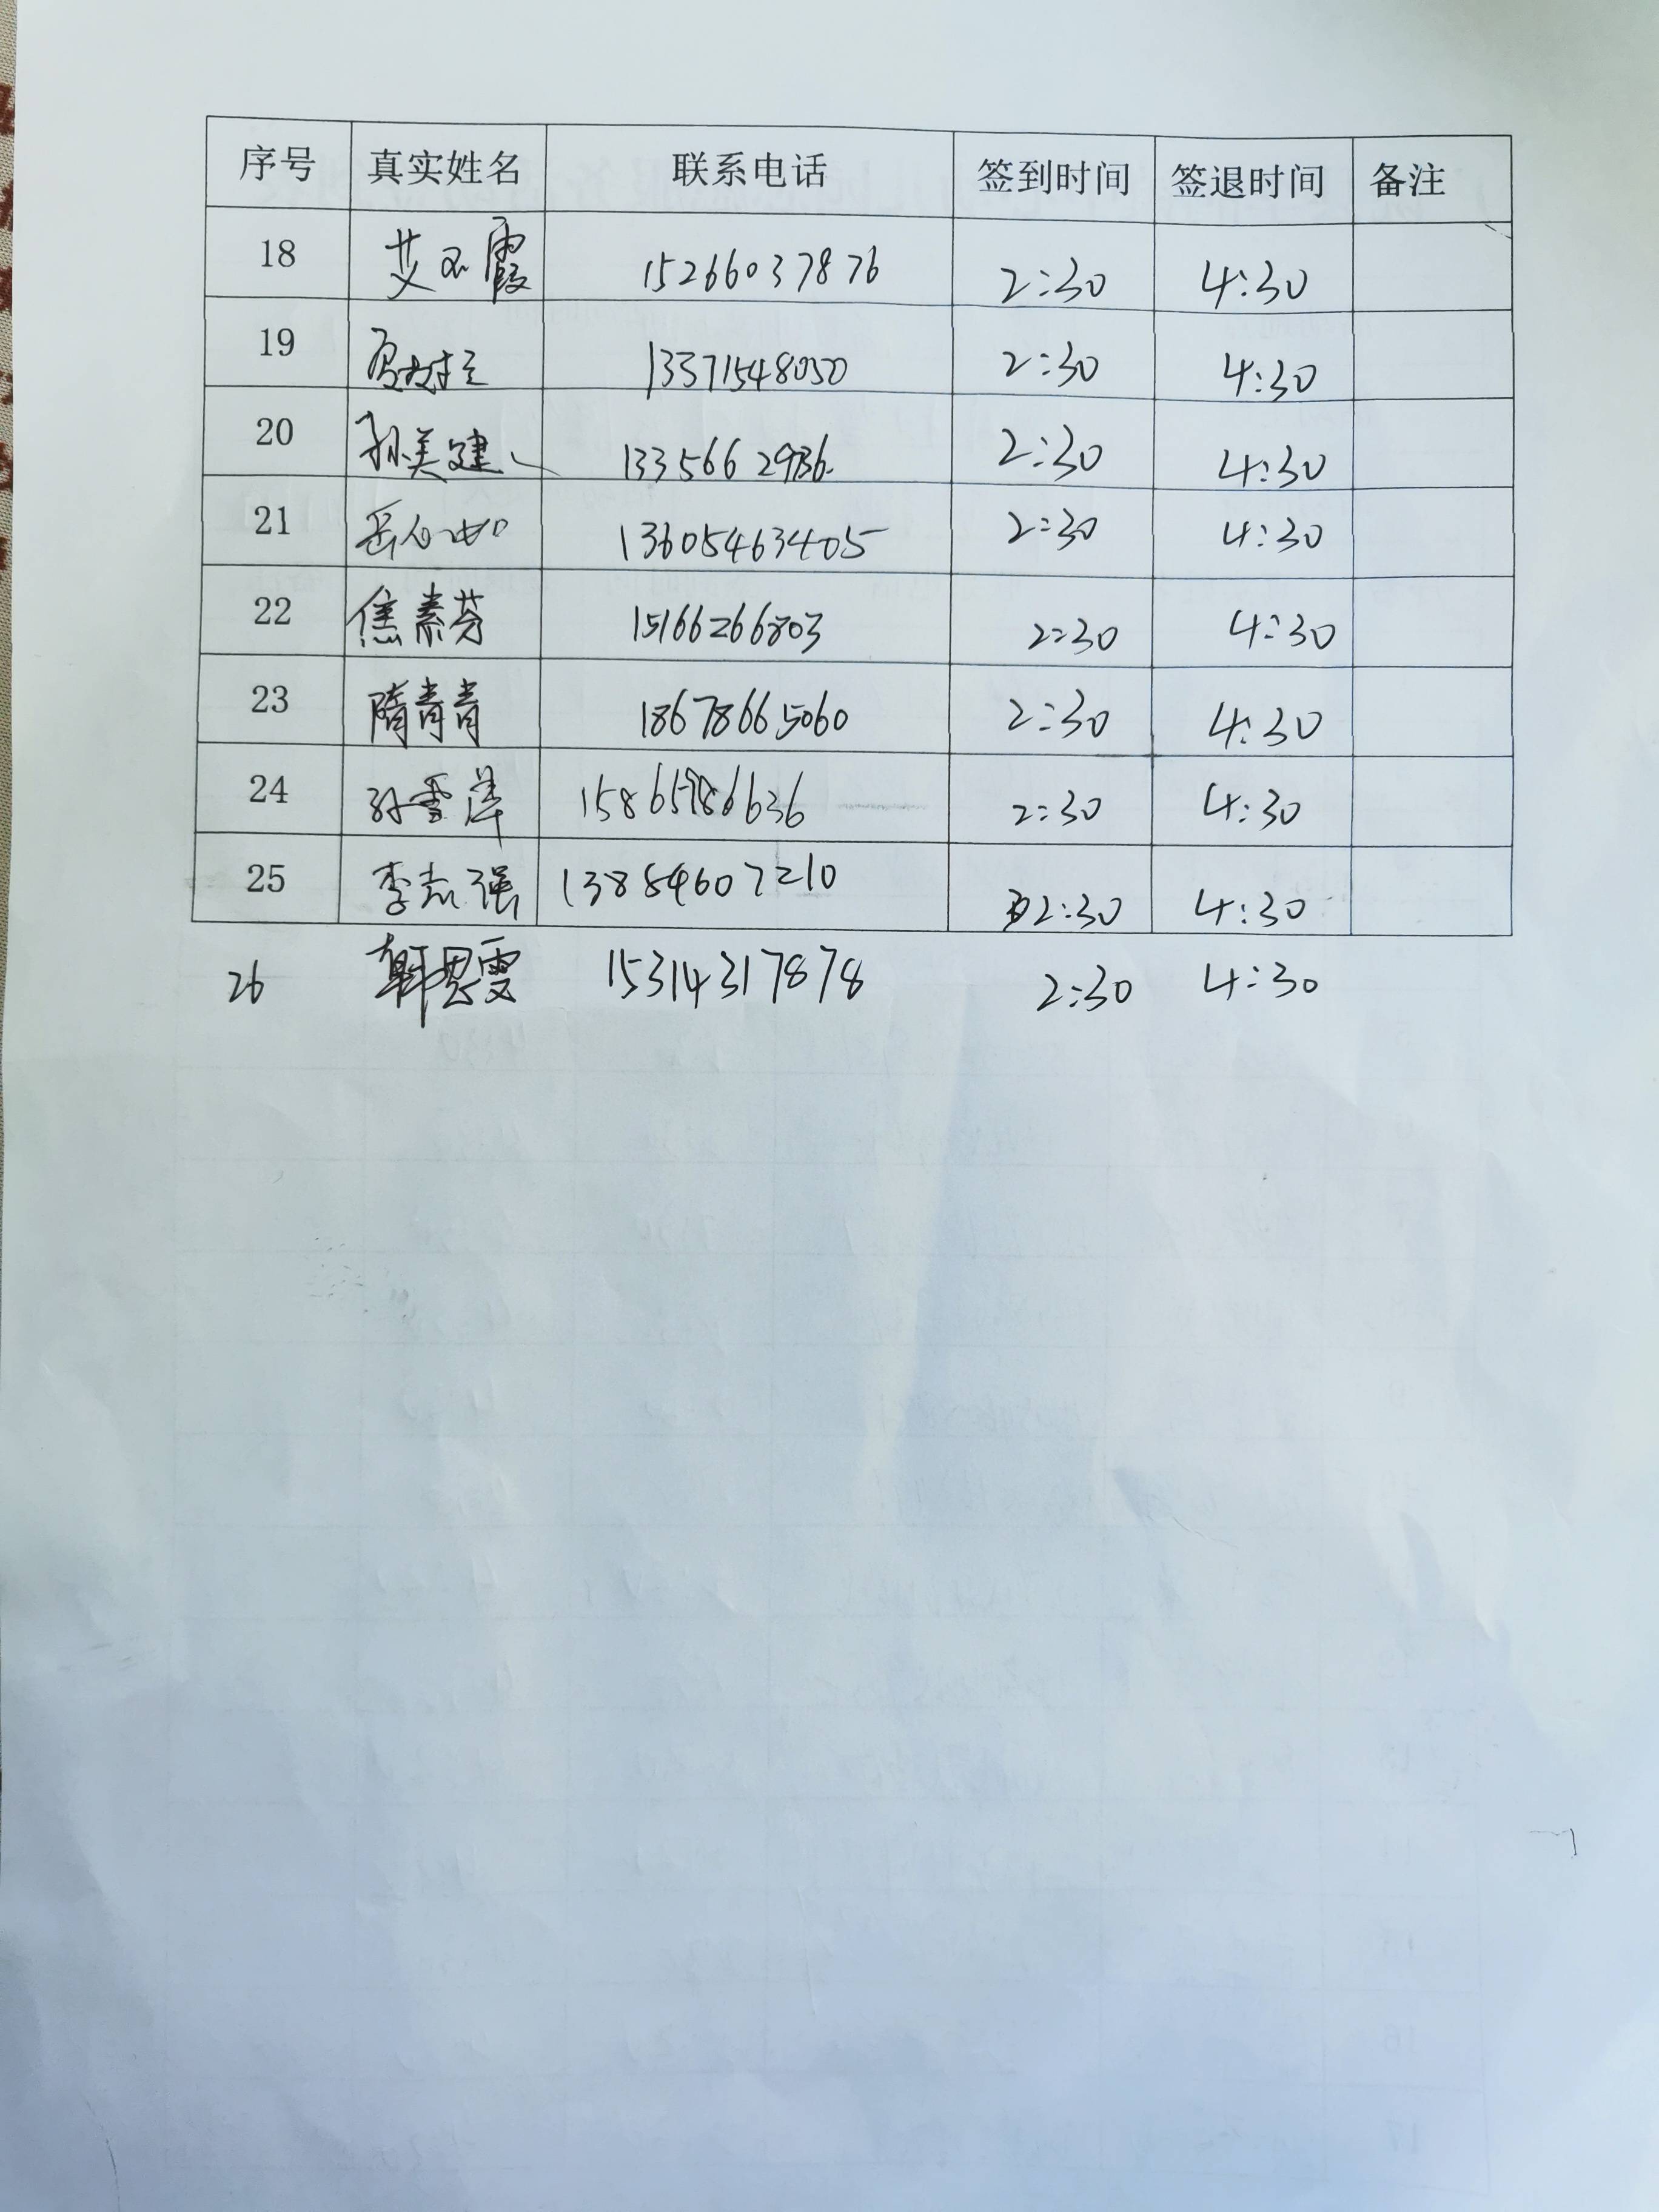 序号 真实姓名 联系电话 签到时间 签退时间 备注
18 艾 霞 15266037876 2:30 4:30
19 13371548050 2:30 4:30
20 孙美建 13356629736. 2:30 4:30
21 岳 13605463405 2:30 4:30
22 焦素芬 15166266803 2:30 4:30
23 隋青青 18678665060 2:30 4:30
24 孙雪萍 15865786636 2:30 4:30
25 李志强 13884607210 2:30 4:30
26 韩恩雯 15314317878 2:30 4:30